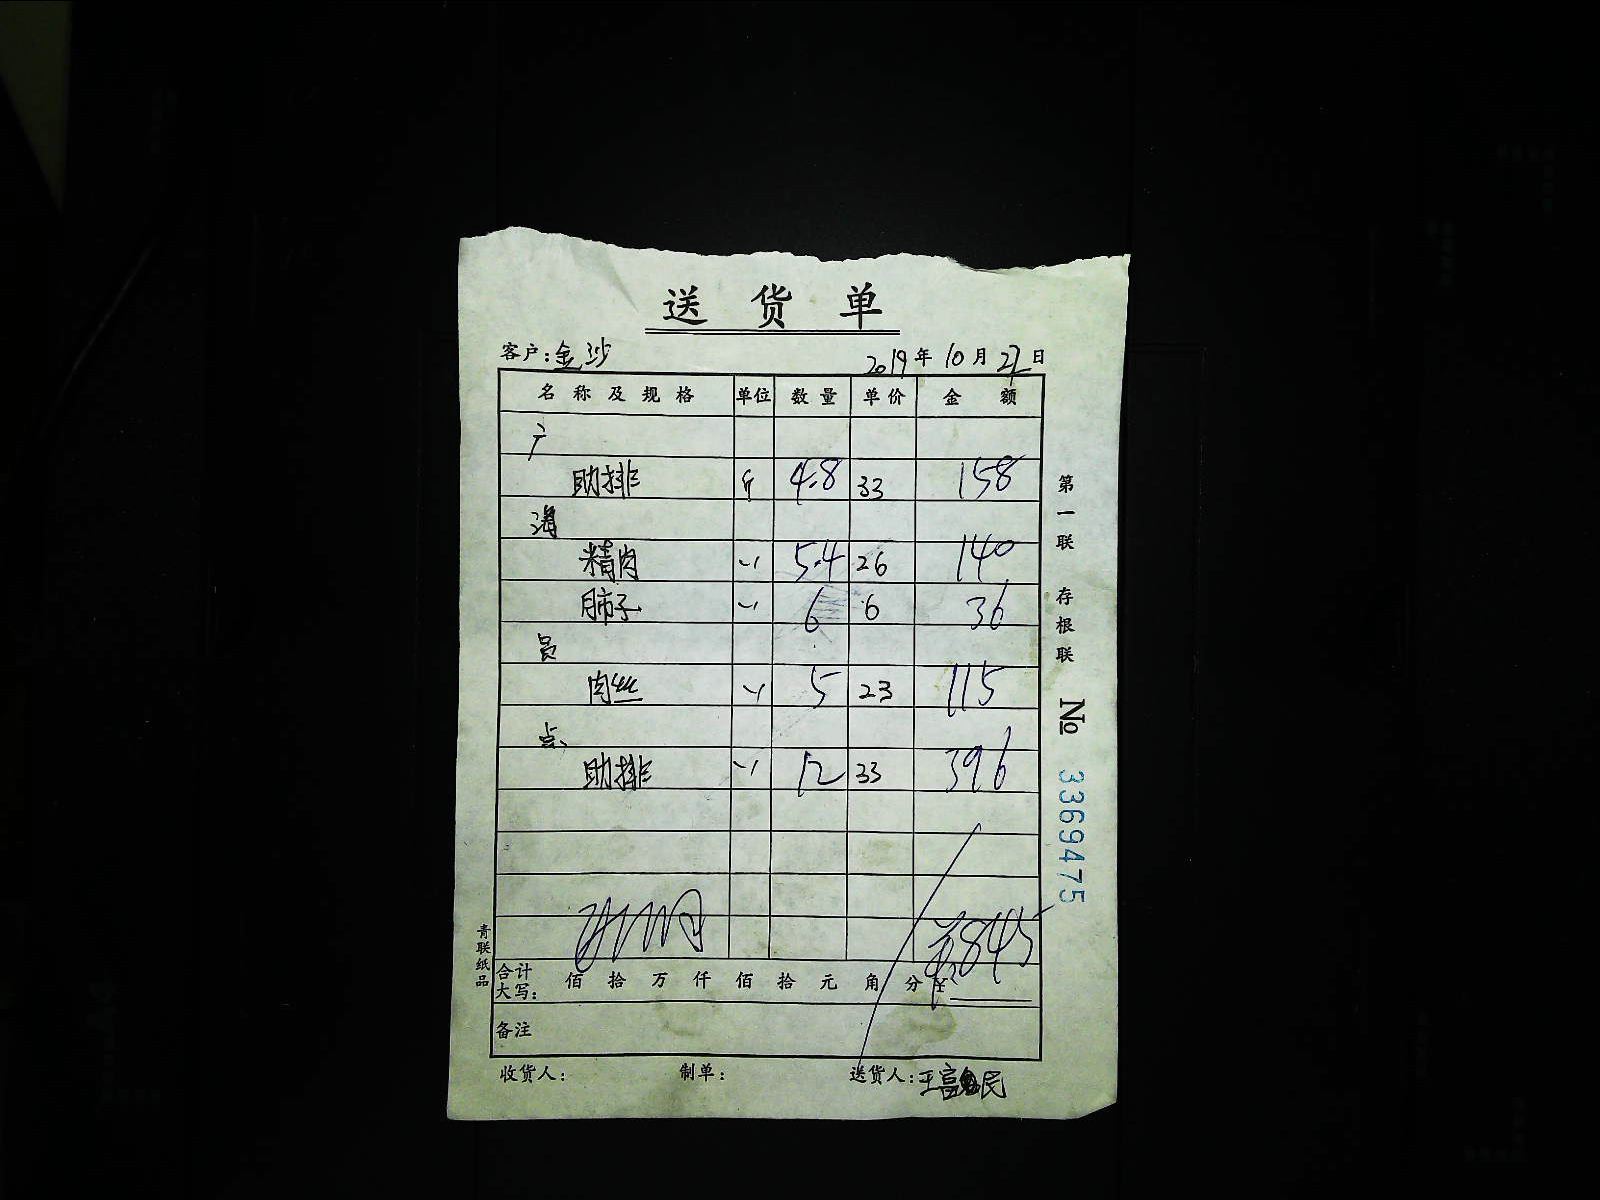 送 货 单
客户：金沙 2019年10月22日
名称及规格 单位 数量 单价 金额
广
助排 斤 4.8 33 158
海
精肉 〃 5.4 26 140
肺子 〃 6 6 36
员
肉丝 〃 5 23 115
点
助排 〃 12 33 396
845
合计大写： 佰 拾 万 仟 佰 拾 元 角 分 ¥
备注
收货人： 制单： 送货人：王富民
第一联 存根联 No 3369475
青联纸品